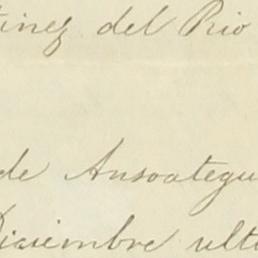 tinez del Rio
de Ansoategu
Diciembre ulti